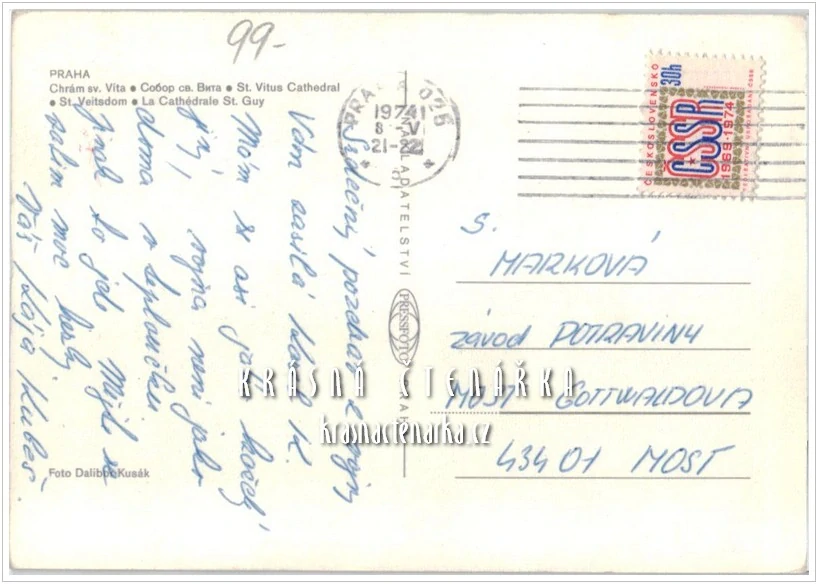 99-
PRAHA
Chrám sv. Víta • Собор св. Вита • St. Vitus Cathedral
• St. Veitsdom • La Cathédrale St. Guy
Srdečný pozdrav z vojny
Vám zasílá
Mám se asi jak
vojna není jako
doma v teploučku
Jinak to jde. Mějte se
zatím moc hezky
Váš Kája Kubeš.
Foto Dalibor Kusák
NAKLADATELSTVÍ
PRESSFOTO
PRAHA
1974
8 - V
21-22
ČESKOSLOVENSKO
30h
ČSSR
1969-1974
S.
MARKOVÁ
závod POTRAVINY
MOST GOTTWALDOVA
434 01 MOST
KRÁSNÁ ČTENÁŘKA
krasnactenarka.cz